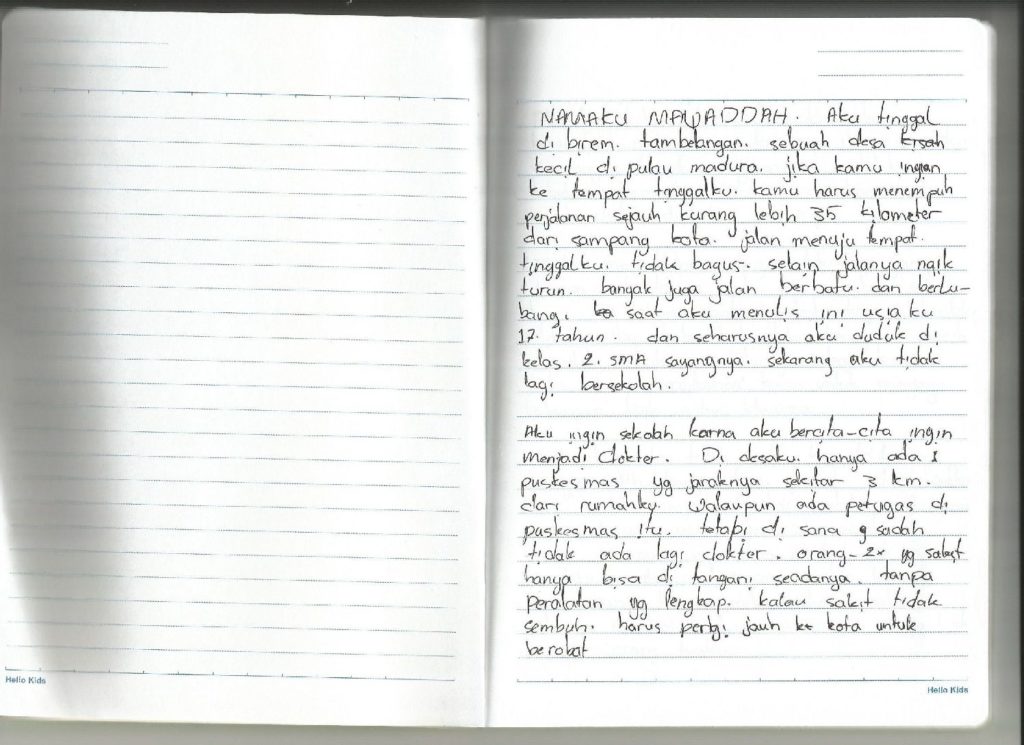 NAMAKU MAWADDAH. Aku tinggal
di birem. tambelangan. sebuah desa
kecil di pulau madura. jika kamu ingin
ke tempat tinggalku. kamu harus menempuh
perjalanan sejauh kurang lebih 35 kilometer
dari sampang kota. jalan menuju tempat.
tinggalku. tidak bagus. selain jalanya naik
turun. banyak juga jalan berbatu. dan berlu-
bang. saat aku menulis ini usia ku
17. tahun. dan seharusnya aku duduk di
kelas. 2. SMA sayangnya. sekarang aku tidak
lagi bersekolah.
Aku ingin sekolah karna aku bercita-cita ingin
menjadi dokter. Di desaku. hanya ada 1
puskesmas yg jaraknya sekitar 3 km.
dari rumahku. walaupun ada petugas di
puskesmas itu. tetapi di sana sudah
tidak ada lagi dokter. orang-2x yg sakit
hanya bisa di tangani seadanya. tanpa
peralatan yg lengkap. kalau sakit tidak
sembuh. harus pergi jauh ke kota untuk
berobat
Hello Kids
Hello Kids